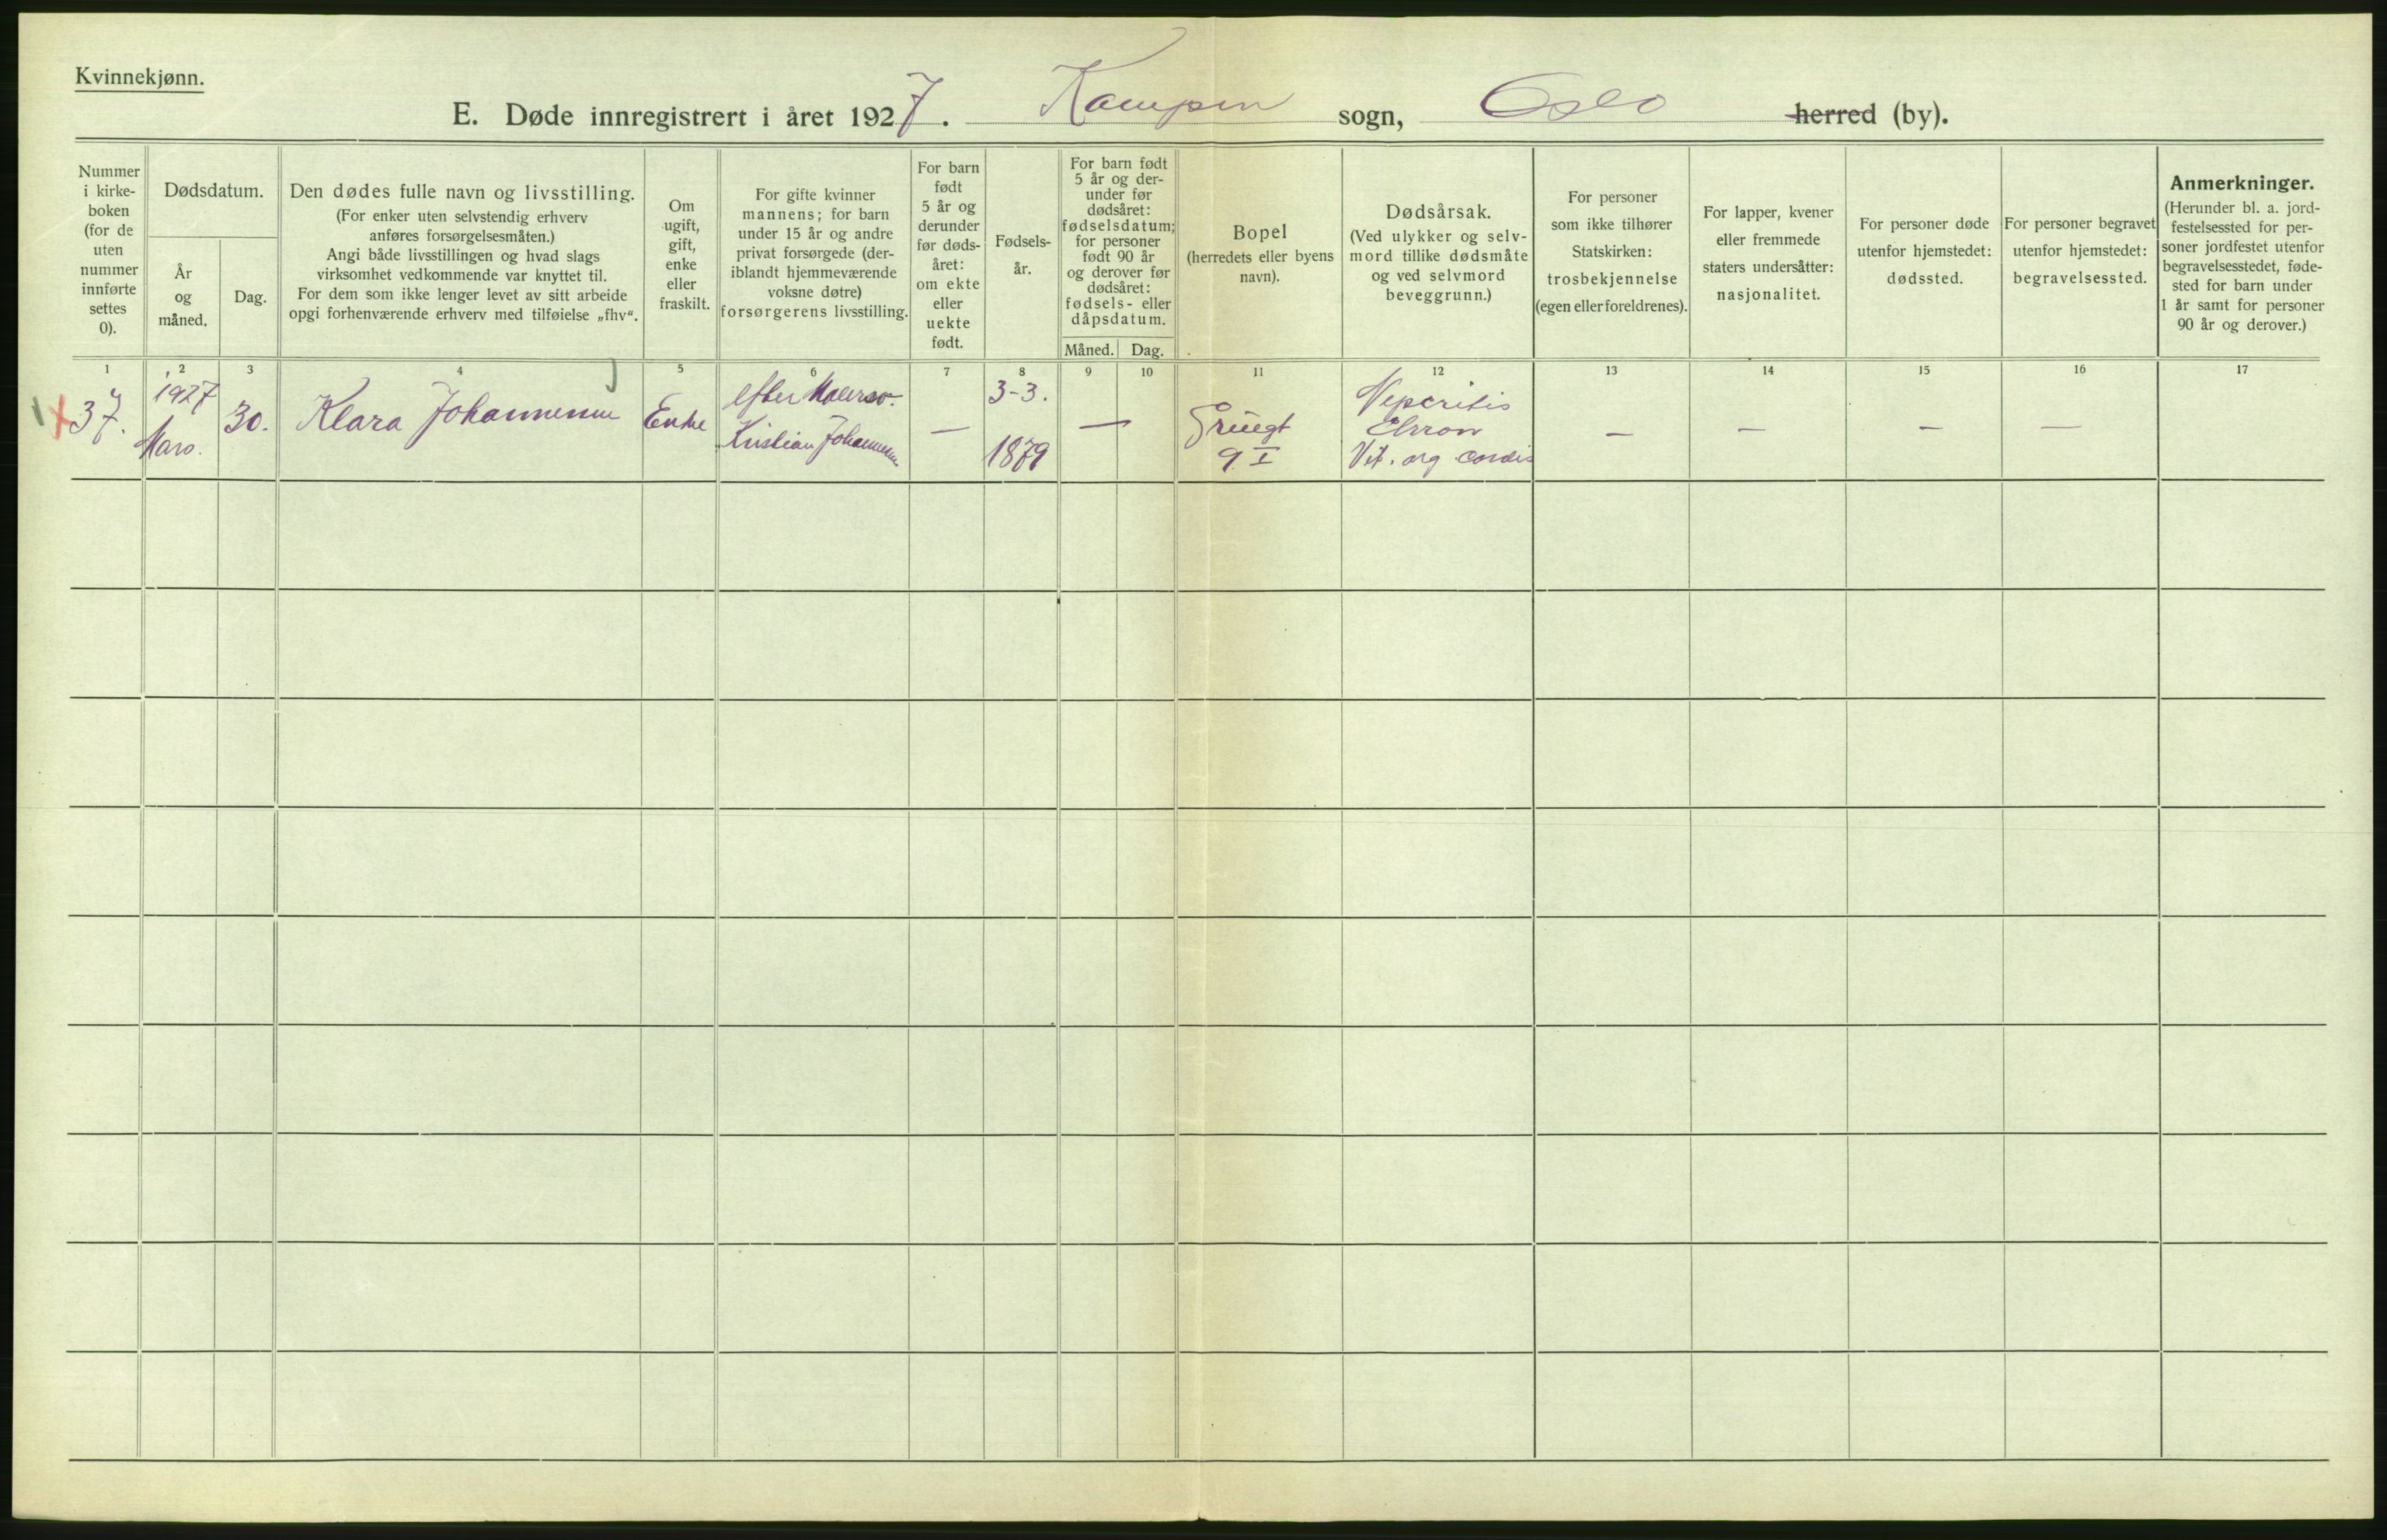 Kvinnekjønn.
E. Døde innregistrert i året 1927. Kampen sogn, Oslo herred (by).
Nummer
i kirke-
boken
(for de
uten
nummer
innførte
settes
0).
Dødsdatum.
År
og
måned.
Dag.
Den dødes fulle navn og livsstilling.
(For enker uten selvstendig erhverv
anføres forsørgelsesmåten.)
Angi både livsstillingen og hvad slags
virksomhet vedkommende var knyttet til.
For dem som ikke lenger levet av sitt arbeide
opgi forhenværende erhverv med tilføielse „fhv“.
Om
ugift,
gift,
enke
eller
fraskilt.
For gifte kvinner
mannens; for barn
under 15 år og andre
privat forsørgede (der-
iblandt hjemmeværende
voksne døtre)
forsørgerens livsstilling.
For barn
født
5 år og
derunder
før døds-
året:
om ekte
eller
uekte
født.
Fødsels-
år.
For barn født
5 år og der-
under før
dødsåret:
fødselsdatum;
for personer
født 90 år
og derover før
dødsåret:
fødsels- eller
dåpsdatum.
Måned. Dag.
Bopel
(herredets eller byens
navn).
Dødsårsak.
(Ved ulykker og selv-
mord tillike dødsmåte
og ved selvmord
beveggrunn.)
For personer
som ikke tilhører
Statskirken:
trosbekjennelse
(egen eller foreldrenes).
For lapper, kvener
eller fremmede
staters undersåtter:
nasjonalitet.
For personer døde
utenfor hjemstedet:
dødssted.
For personer begravet
utenfor hjemstedet:
begravelsessted.
Anmerkninger.
(Herunder bl. a. jord-
festelsessted for per-
soner jordfestet utenfor
begravelsesstedet, føde-
sted for barn under
1 år samt for personer
90 år og derover.)
1 2 3 4 5 6 7 8 9 10 11 12 13 14 15 16 17
37.
1927
Mars.
30.
Klara Johannesen
Enke
efter Malersv.
Kristian Johannesen
—
3-3.
1879
—
9 I
Chron
Vit. org cordis
—
—
—
—